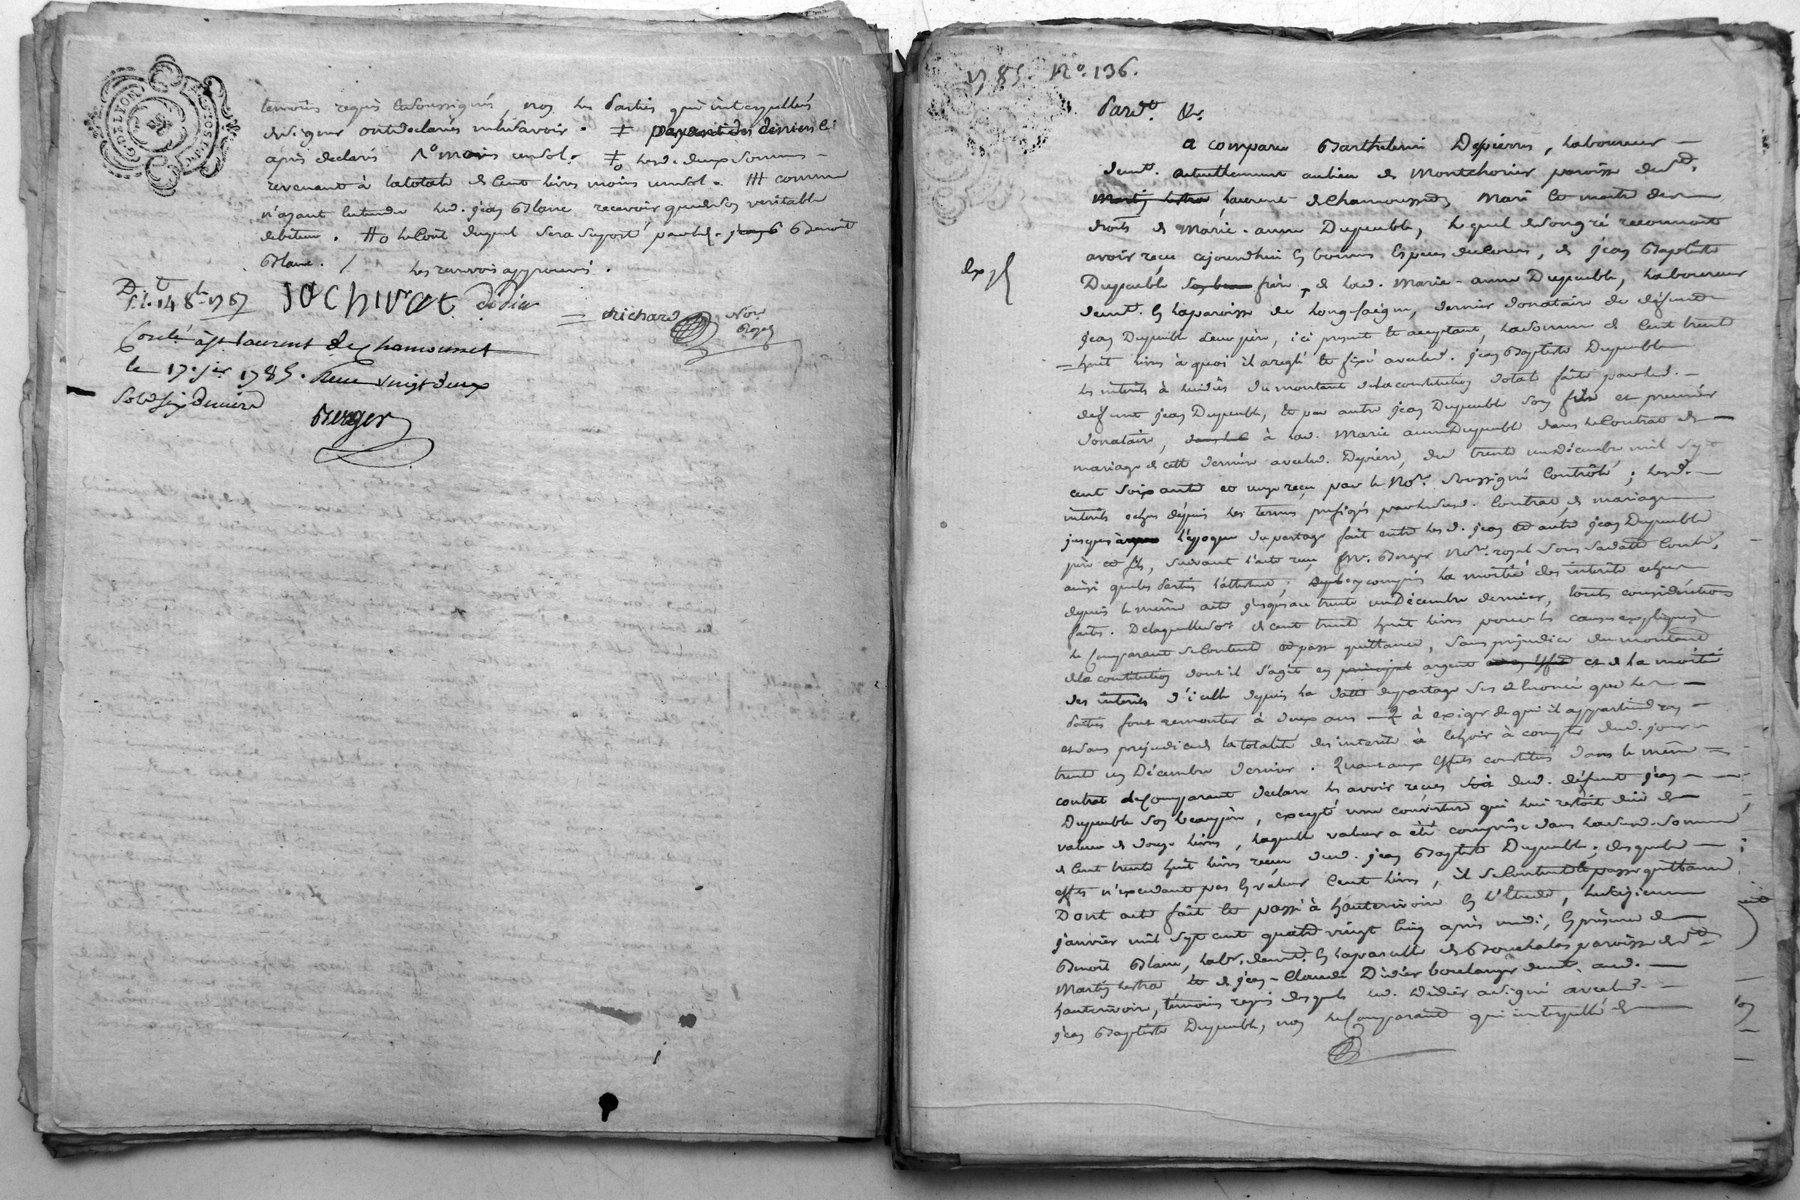 temoins requis et soussignés, non les parties qui interpellés
de signer ont declarés ne le savoir. ‡ payant des deniers ci
après declarés /o moins un sol. ‡o les deux sommes
revenant à la totale de cent livres moins un sol. ## comme
n'ayant entendu led. jean Blanc recevoir que de son veritable
debiteur. #o le Coût duquel sera suporté par led. Benoit
Blanc. / les renvois approuvés.
JOCHIVAT didier richard Nore Royal
Conlé à St laurent de Chamousset
le 17. jer 1785. Reçu vingt deux
Sols six deniers
Berger
G. DE LYON
1785. No. 136.
Pardt &c.
a comparu Barthelemi Depierre, laboureur
demt. actuellement au lieu de Montchorier paroisse de St.
laurent de Chamousset, Mari et maitre des
droits de Marie-anne Dupeuble, lequel de son gré reconnoit
avoir reçu ajourdhui en bonnes Espèces de Cours, de jean Baptiste
Dupeuble frère, de lad. Marie-anne Dupeuble, laboureur
demt. en la paroisse de longesaigne, dernier donataire de défunt
jean Dupeuble leur père, ici present et acceptant, la somme de Cent trente
huit livres à quoi il a reglé et fixé avec led. jean Baptiste Dupeuble
les interets à lui dûs du montant de la constitution dotale faite par led.
defunt jean Dupeuble, et par autre jean Dupeuble son fils et premier
donataire, à lad. Marie anne Dupeuble dans le Contrat de
mariage de cette derniere avec led. Depierre, du trente un décembre mil sept
cent soixante et onze reçu par le Nore. soussigné Contrôlé; lesd.
interets echus dépuis les termes prefigés par led. Contrat de mariage
jusques à l'époque du partage fait entre lesd. jean et autre jean Dupeuble
père et fils, suivant l'acte reçu Me. Berger Nore. royal sous sa datte Contlé,
ainsi que les parties l'attestent; y compris la moitié des interets echus
depuis le même acte jusqu'au trente un Décembre dernier, toutes considérations
faites. De laquelle so. de cent trente huit livres pour les causes expliquées
le Comparant se Contente et passe quittance, sans prejudice du montant
de la constitution dont il s'agit en principal argent et de la moitié
des interets d'icelle depuis la datte du partage sus énoncé que les
parties font remonter à deux ans à exiger de qui il appartiendra
et sans prejudice de la totalité des interets à échoir à compter dud. jour
trente un Décembre dernier. Quant aux effets constitués dans le même
contrat le Comparant declare les avoir reçus dud. défunt jean
Dupeuble son beaupère, excepté une couverture qui lui restoit düe de
valeur de douze livres, laquelle valeur a été comprise dans lad. somme
de Cent trente huit livres reçue dud. jean Baptiste Dupeuble; desquels
effets n'excedant pas en valeur Cent livres, il se Contente et passe quittance
Dont acte fait et passé à hauterivoire en l'Etude, le sixieme
janvier mil sept cent quatre vingt cinq après midi, en presence de
Benoit Blanc, labr. demt. en la parcelle de Bouchalas paroisse de St
Martin lestra et de jean-Claude Didier boulanger demt. aud.
hauterivoire, temoins requis desquels led. Didier a signé avec led.
jean Baptiste Dupeuble, non le Comparant qui interpellé de